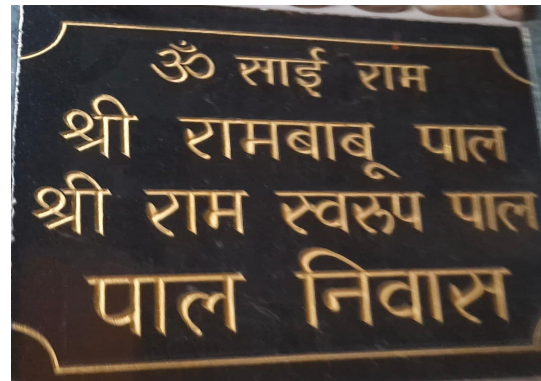 ॐ साई राम
श्री रामबाबू पाल
श्री राम स्वरूप पाल
पाल निवास